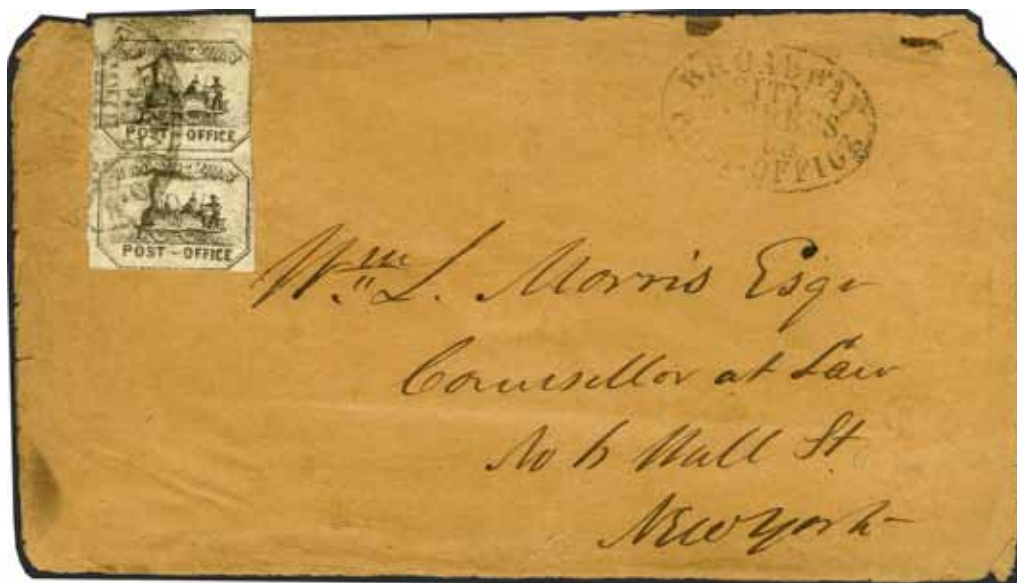 POST-OFFICE
POST-OFFICE
BROADWAY
CITY
EXPRESS
POST-OFFICE
Wm. L. Morris Esqr
Counsellor at Law
No 6 Wall St.
New York